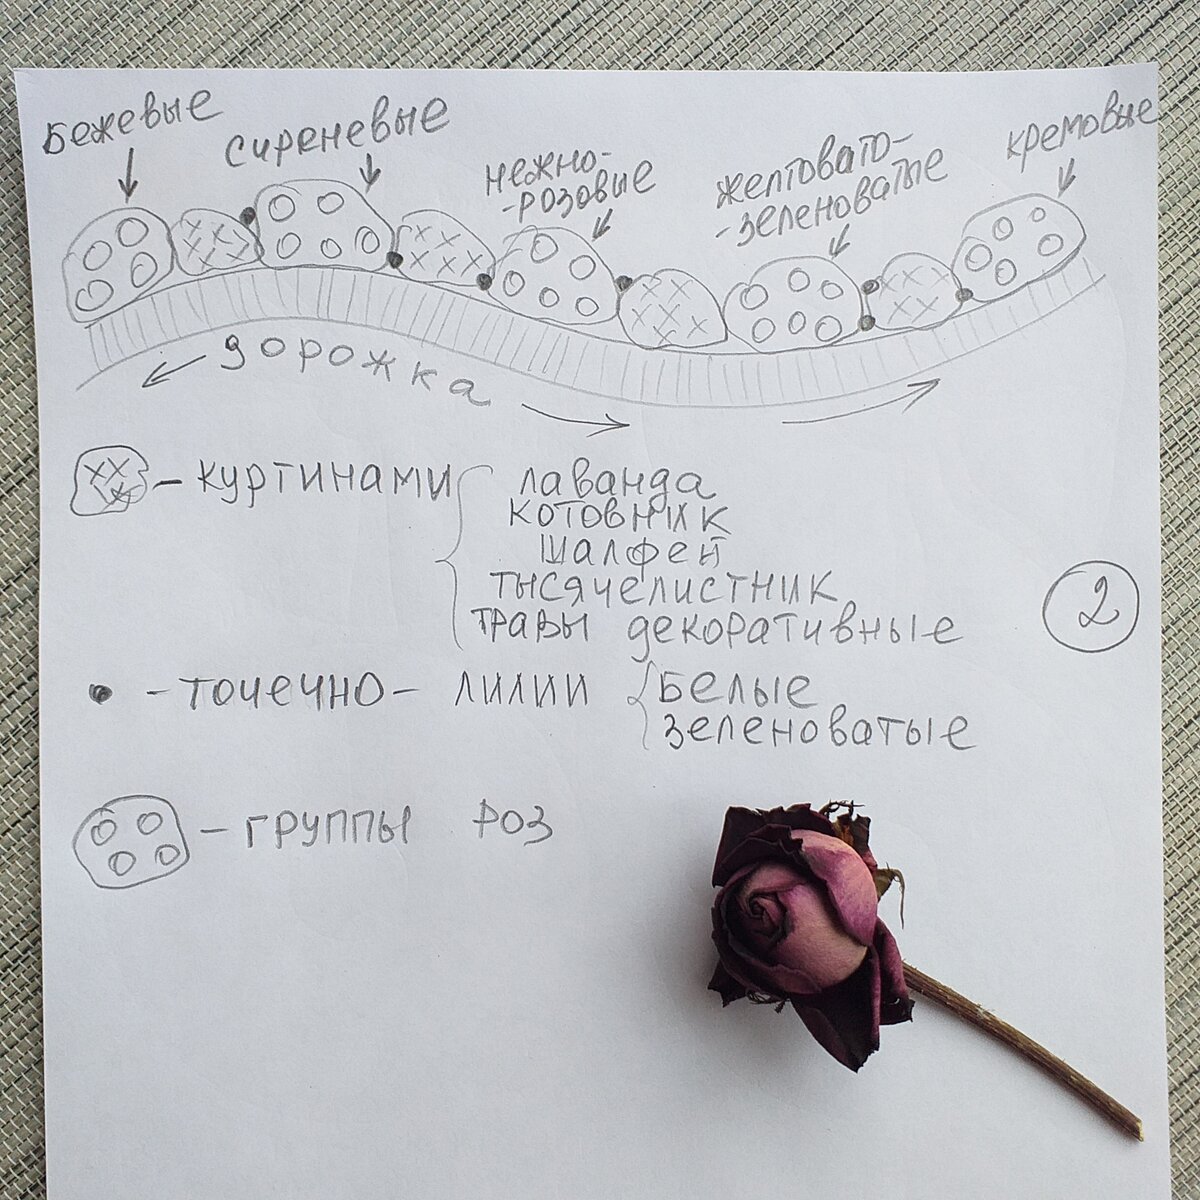 Бежевые
сиреневые
нежно-
-розовые
желтовато-
-зеленоватые
кремовые
дорожка
- куртинами
лаванда
котовник
шалфей
тысячелистник
травы декоративные
2
- точечно - лилии
белые
зеленоватые
- группы роз